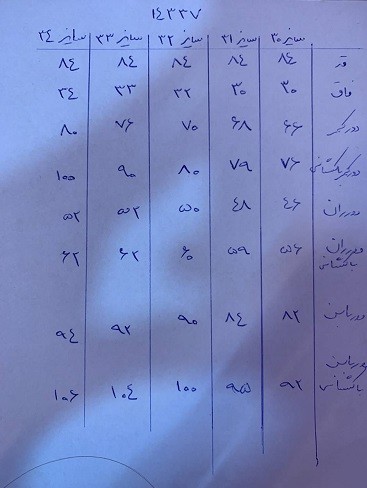 ۱۴۳۳۷
سایز ۳۰ سایز ۳۱ سایز ۳۲ سایز ۳۳ سایز ۳۴
قد ۸۴ ۸۴ ۸۴ ۸۴ ۸۴
فاق ۳۰ ۳۰ ۳۲ ۳۳ ۳۴
دورکمر ۶۶ ۶۸ ۷۰ ۷۶ ۸۰
دورکمر باکشسانی ۷۶ ۷۹ ۸۰ ۹۰ ۱۰۰
دورران ۴۶ ۴۸ ۵۰ ۵۲ ۵۲
دورران باکشسانی ۵۶ ۵۹ ۶۰ ۶۲ ۶۲
دورباسن ۸۲ ۸۴ ۹۰ ۹۲ ۹۴
دورباسن باکشسانی ۹۲ ۹۵ ۱۰۰ ۱۰۴ ۱۰۶